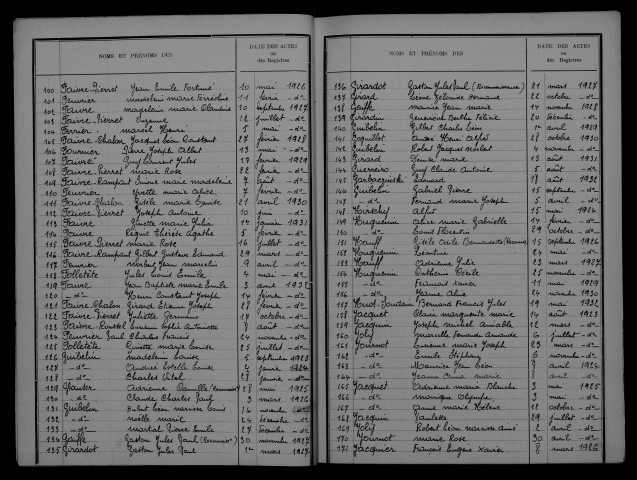 NOMS ET PRÉNOMS DES
DATE DES ACTES
ou
des Registres
100 Faivre-Pierret Jean Emile Fortuné 10 mai 1926
101 Peuvrier madeleine marie 11 février -d°
102 Faivre madeleine marie Claudine 10 septembre 1927
103 Faivre-Pierret Suzanne 12 juillet -d°
104 Ferrier marcel Henri 5 mai -d°
105 Faivre-Chalon Jacques Léon 27 février 1928
106 Fournier Pierre Joseph Albert 13 mai -d°
107 Faivre Guy Laurent Jules 17 février 1929
108 Faivre-Pierret marie Rose 22 février -d°
109 Faivre-Rampant marie madeleine 7 août -d°
110 Peuvrier Yvette marie Alice 7 février -d°
111 Faivre-Chalon Gisèle marie Louise 21 avril 1930
112 Faivre-Pierret Joseph Antoine 10 juin -d°
113 Faivre Ginette marie Julia 14 janvier 1931
114 Faivre Thérèse Agathe 5 février -d°
115 Faivre-Pierret marie Rose 16 juillet -d°
116 Faivre-Rampant Gilbert Gustave Edmond 29 mars -d°
117 Faivre Jean marcelin 9 avril -d°
118 Folletête Jules Louis Emile 4 mai -d°
119 Faivre Jean Baptiste marie Emile 3 avril 1932
120 -d° Henri Constant Joseph 14 février -d°
121 Faivre-Chalon Girard Etienne Joseph 28 février -d°
122 Faivre-Pierret Juliette Germaine 17 octobre -d°
123 Faivre-Roussel Sophie Antoinette 8 août -d°
124 Peuvrier Paul Charles François 24 novembre -d°
125 Folletête Ginette marie Louise 25 juillet -d°
126 Guibelin madeleine Louise 5 septembre 1923
127 -d° Andrée Estelle Louise 4 janvier 1924
128 -d° Charles Vital 28 janvier -d°
129 Adrienne Camille 28 mai 1925
130 -d° Claude Charles Paul 3 mars 1926
131 Guibelin Hubert Léon narcisse Louis 16 novembre -d°
132 -d° noëlle marie 24 décembre -d°
133 -d° martial Pierre Emile 27 décembre -d°
134 Gaiffe Gaston Jules Paul 30 novembre 1927
135 Girardot Gaston Jules Paul 1er mars 1927
NOMS ET PRÉNOMS DES
DATE DES ACTES
ou
des Registres
136 Girardot Gaston Jules Paul (Reconnaissance) 21 mars 1927
137 Girard Léone Zelmire Hermance 22 octobre -d°
138 Gaiffe maurice Jean marie 14 novembre 1928
139 Girardin Geneviève Berthe Félicie 20 décembre -d°
140 Guibelin Gilbert Charles Léon 1er avril 1929
141 André Henri Alfred 28 octobre 1930
142 Guibelin Robert Jacques 4 novembre -d°
143 Girard Denise marie 13 août 1931
144 Guerreiro Guy Claude Antoine 5 août -d°
145 Edouard 18 août 1932
146 Guibelin Gabriel Pierre 15 septembre -d°
147 -d° Fernand marie Joseph 5 avril -d°
148 Alfred 15 mai 1926
149 Huguenin Alice marie Gabrielle 14 février -d°
150 -d° Louis Florentin 29 octobre -d°
151 Gisèle Cécile Bernadette 15 septembre 1926
152 Huguenin Léontine 24 mai -d°
153 Adrienne Julie 23 mars 1927
154 Huguenin Catherine Cécile 25 novembre -d°
155 -d° François Xavier 11 mai 1929
156 -d° Jeanne Alice 24 novembre 1930
157 Bernard François Jules 19 mai 1932
158 Jacquet Claire marguerite marie 14 août 1923
159 Jacquin Joseph michel Aimable 12 mars -d°
160 Joly marcelle Fernande Amande 6 juillet -d°
161 Journot Lucienne marie Joseph 23 mars -d°
162 -d° Emile Stéphany 6 novembre -d°
163 -d° maurice Jean Léon 8 avril 1924
164 -d° Jeanne Cécile marie 8 avril -d°
165 Jacquet Adrienne marie Blanche 3 mai 1925
166 -d° monique Olympe 3 mai -d°
167 -d° Anne marie Hélène 12 octobre -d°
168 Jacquin Paulette 29 juillet -d°
169 Joly Robert Léon narcisse Aimé 2 avril -d°
170 Journot marie Rose 30 avril -d°
171 Jacquier François Eugène Xavier 8 mars 1926